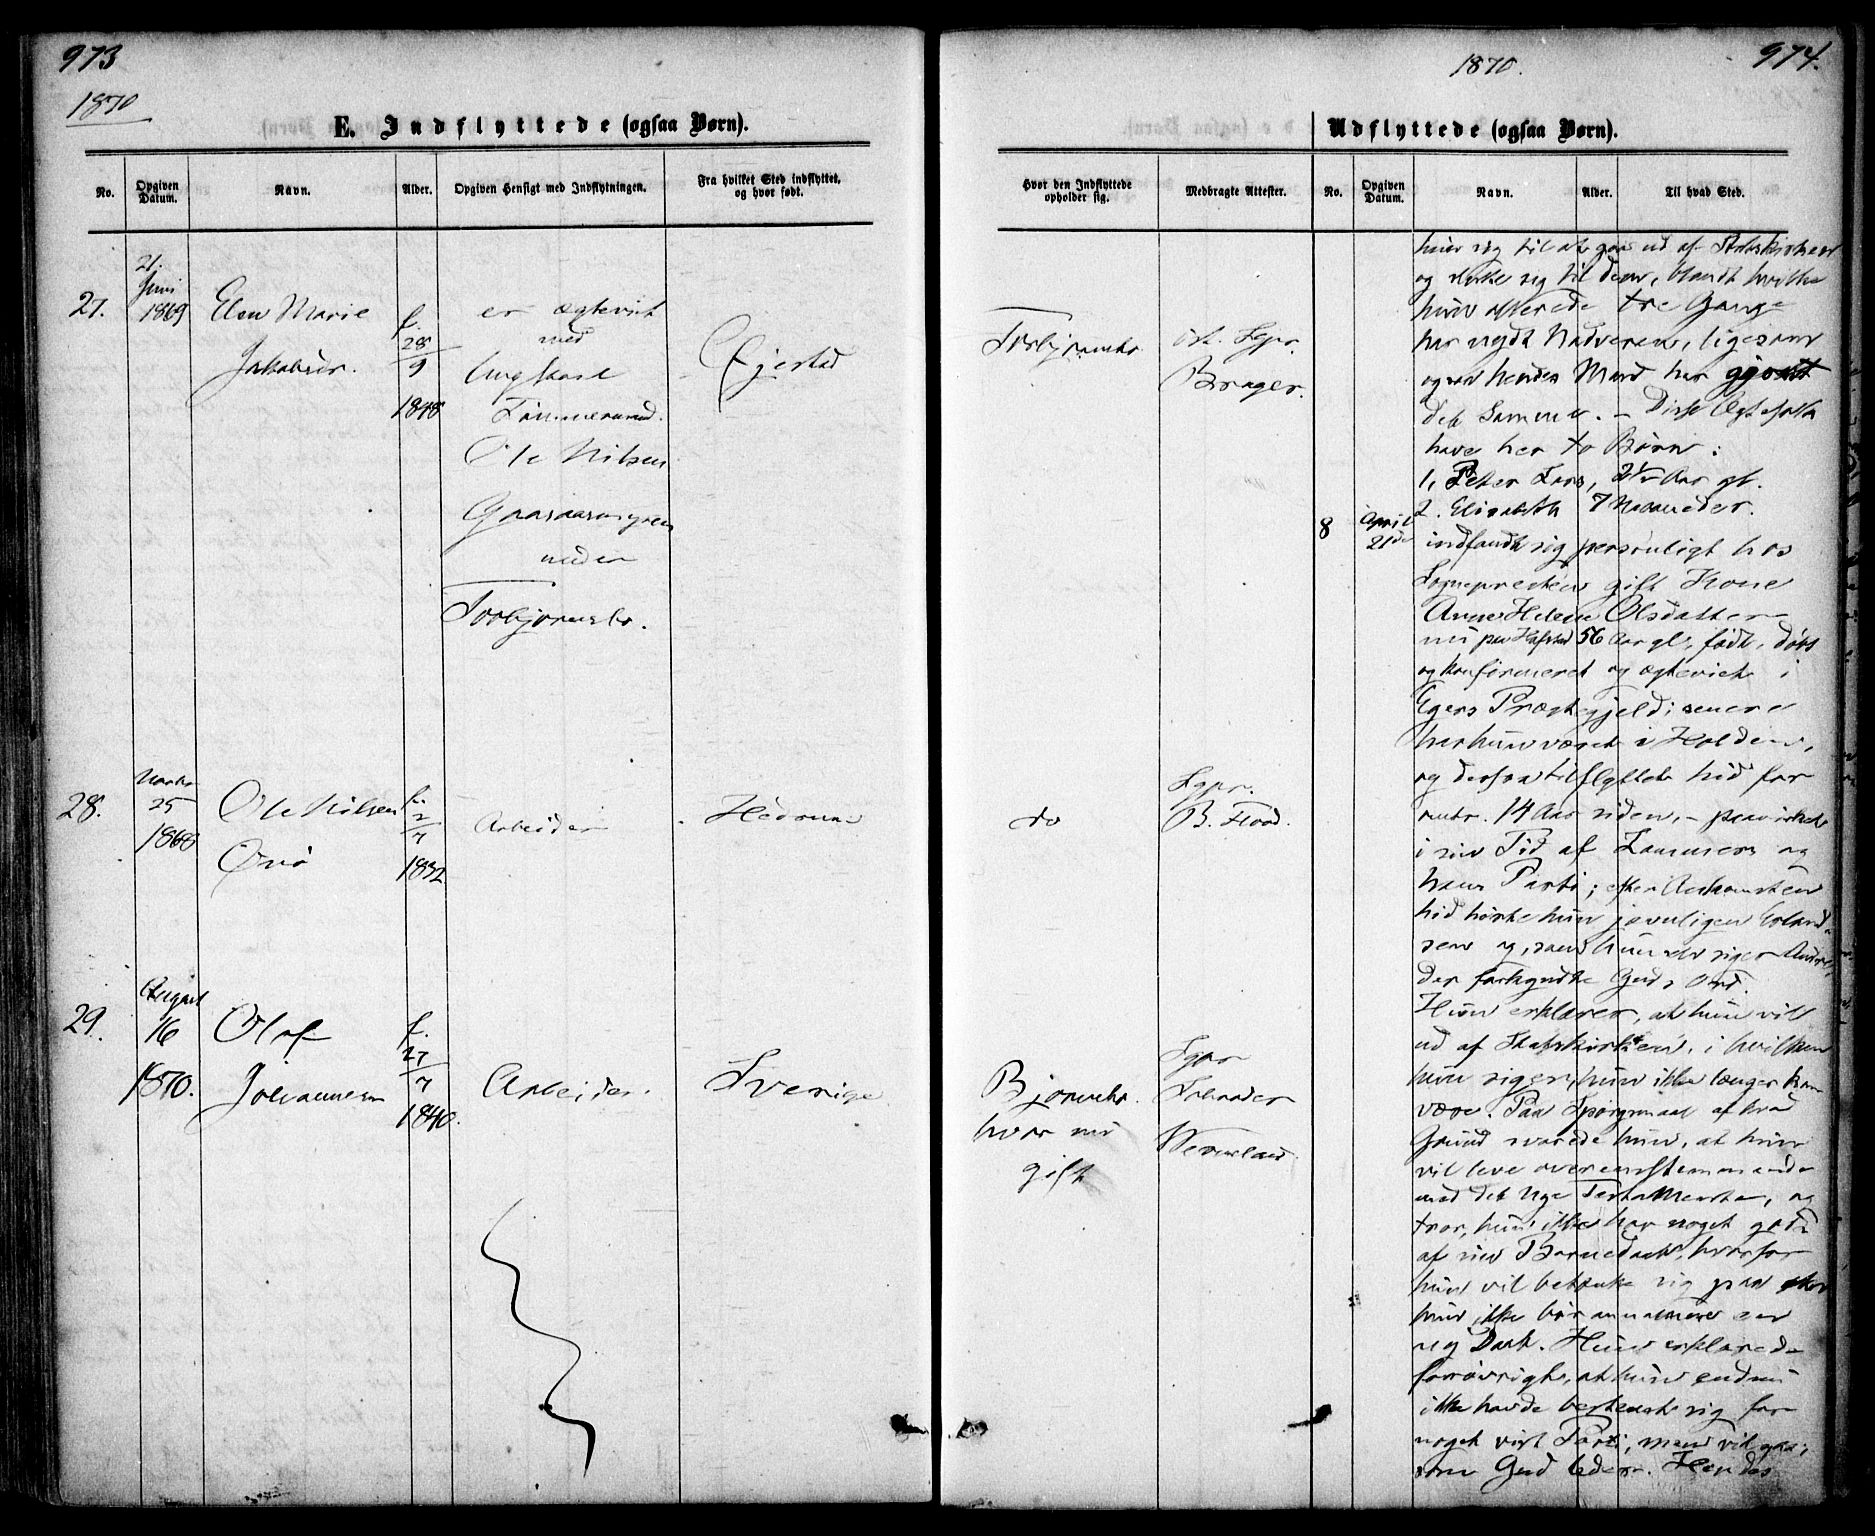 973
1870
E. Indflyttede (ogsaa Børn).
No.
Opgiven Datum.
Navn.
Alder.
Opgiven Hensigt med Indflytningen.
Fra hvilket Sted indflyttet, og hvor født.
27.
21.
Juni
1869
Elen Marie
Jakobsdr.
f.
28
9
1848
er ægteviet
med
Ungkarl
Tømmermand.
Ole Nilsen
neden
Torbjørnsbr.
Øjestad
28.
Marts
25
1868
Ole Nilsen
f.
2
7
1832
Arbeider
Hedrum
29.
August
16
1870.
Olaf
Johannesen
f.
27
7
1840.
Arbeider.
Sverige
974.
1870.
Udflyttede (ogsaa Børn).
Hvor den Indflyttede opholder sig.
Medbragte Attester.
No.
Opgiven Datum.
Navn.
Alder.
Til hvad Sted.
Torbjørnsbr.
Sgpr.
Brager.
do
Sgpr.
B. Flood.
Bjørnsbr.
hvor nu
gift
Sgpr
Schrøder
Wermland.
hun sig til at gaa ud af Statskirken
og slutte sig til dem, blandt hvilke
hun allerede tre Gange
har nydt Nadveren, ligesom
ogsaa hendes Mand har gjort
det Samme. – Disse Ægtefolk
have her to Børn:
1, Peter Lars, 2½ Aar gl.
2. Elisabeth 7 Maaneder.
8
April
21de
indfandt sig personligt hos
Sognepresten gift Kone
Anne Helene Olsdatter
nu paa Hafstad 56 Aar gl., født, døbt
og konfirmeret og ægteviet i
Egers Præstegjeld; senere
har hun været i Holden,
og derfra tilflyttet hid for
omtr. 14 Aar siden, – paavirket
i sin Tid af Lammers og
hans Parti; efter Ankomsten
hid hørte hun jevnligen Erland-
sen og, som hun selv siger Andre,
der forkyndte Guds Ord.
Hun erklærer, at hun vil
ud af Statskirken, i hvilken
hun siger, hun ikke længer kan
være. Paa Spørgsmaal af hvad
Grund svarede hun, at hun
vil leve overensstemmende
med det Nye Testamente, og
tror, hun ikke har noget godt
af sin Barnedaab, hvorfor
hun vil betænke sig paa
hun ikke bør annamme en
ny Daab. Hun erklærede
forøvrigt, at hun endnu
ikke havde bestemt sig for
noget vist Parti, men vil gaa,
som Gud leder. Hendes